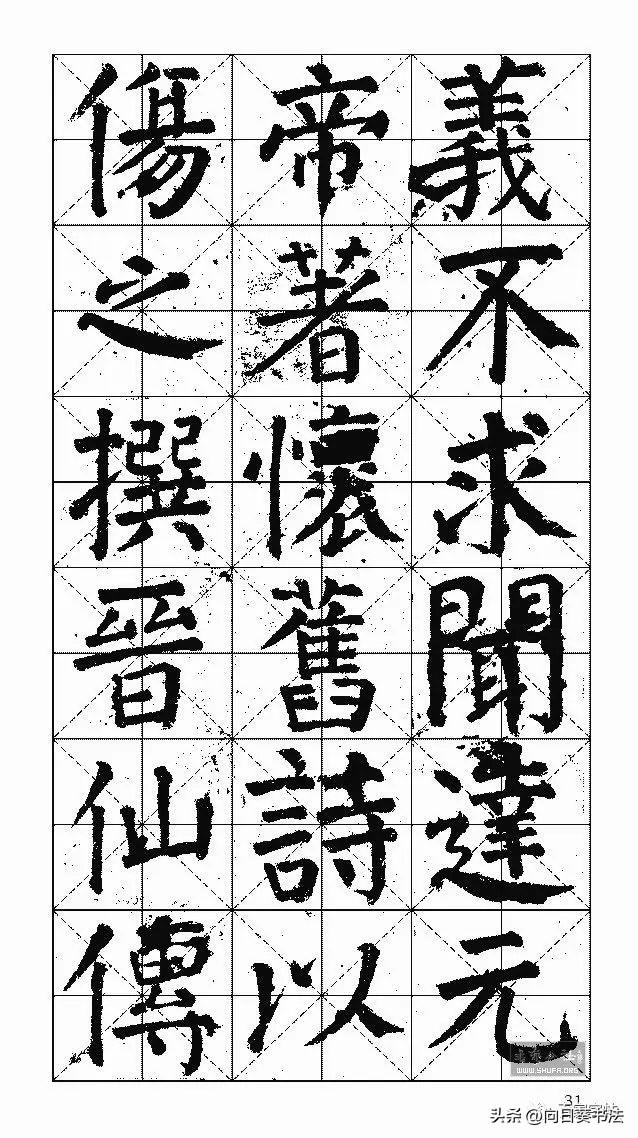 義不求聞達元
帝著懷舊詩以
傷之撰晉仙傳
WWW.SHUFA.ORG
31
头条 @向日葵书法